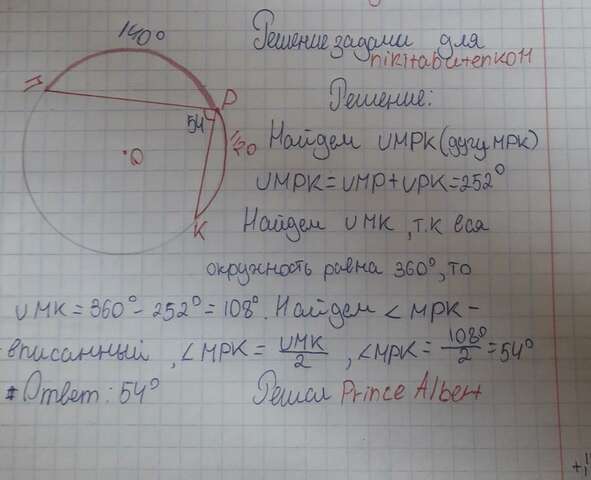 140°
Решение задачи для
nikitabutenko11
M
P
54
Решение:
120
Найдем ∪MPK (дугу MPK)
O
∪MPK = ∪MP + ∪PK = 252°
K
Найдем ∪MK, т.к вся
окружность равна 360°, то
∪MK = 360° - 252° = 108°. Найдем ∠MPK -
вписанный, ∠MPK = ∪MK/2, ∠MPK = 108°/2 = 54°
Ответ: 54°
Решал Prince Albert